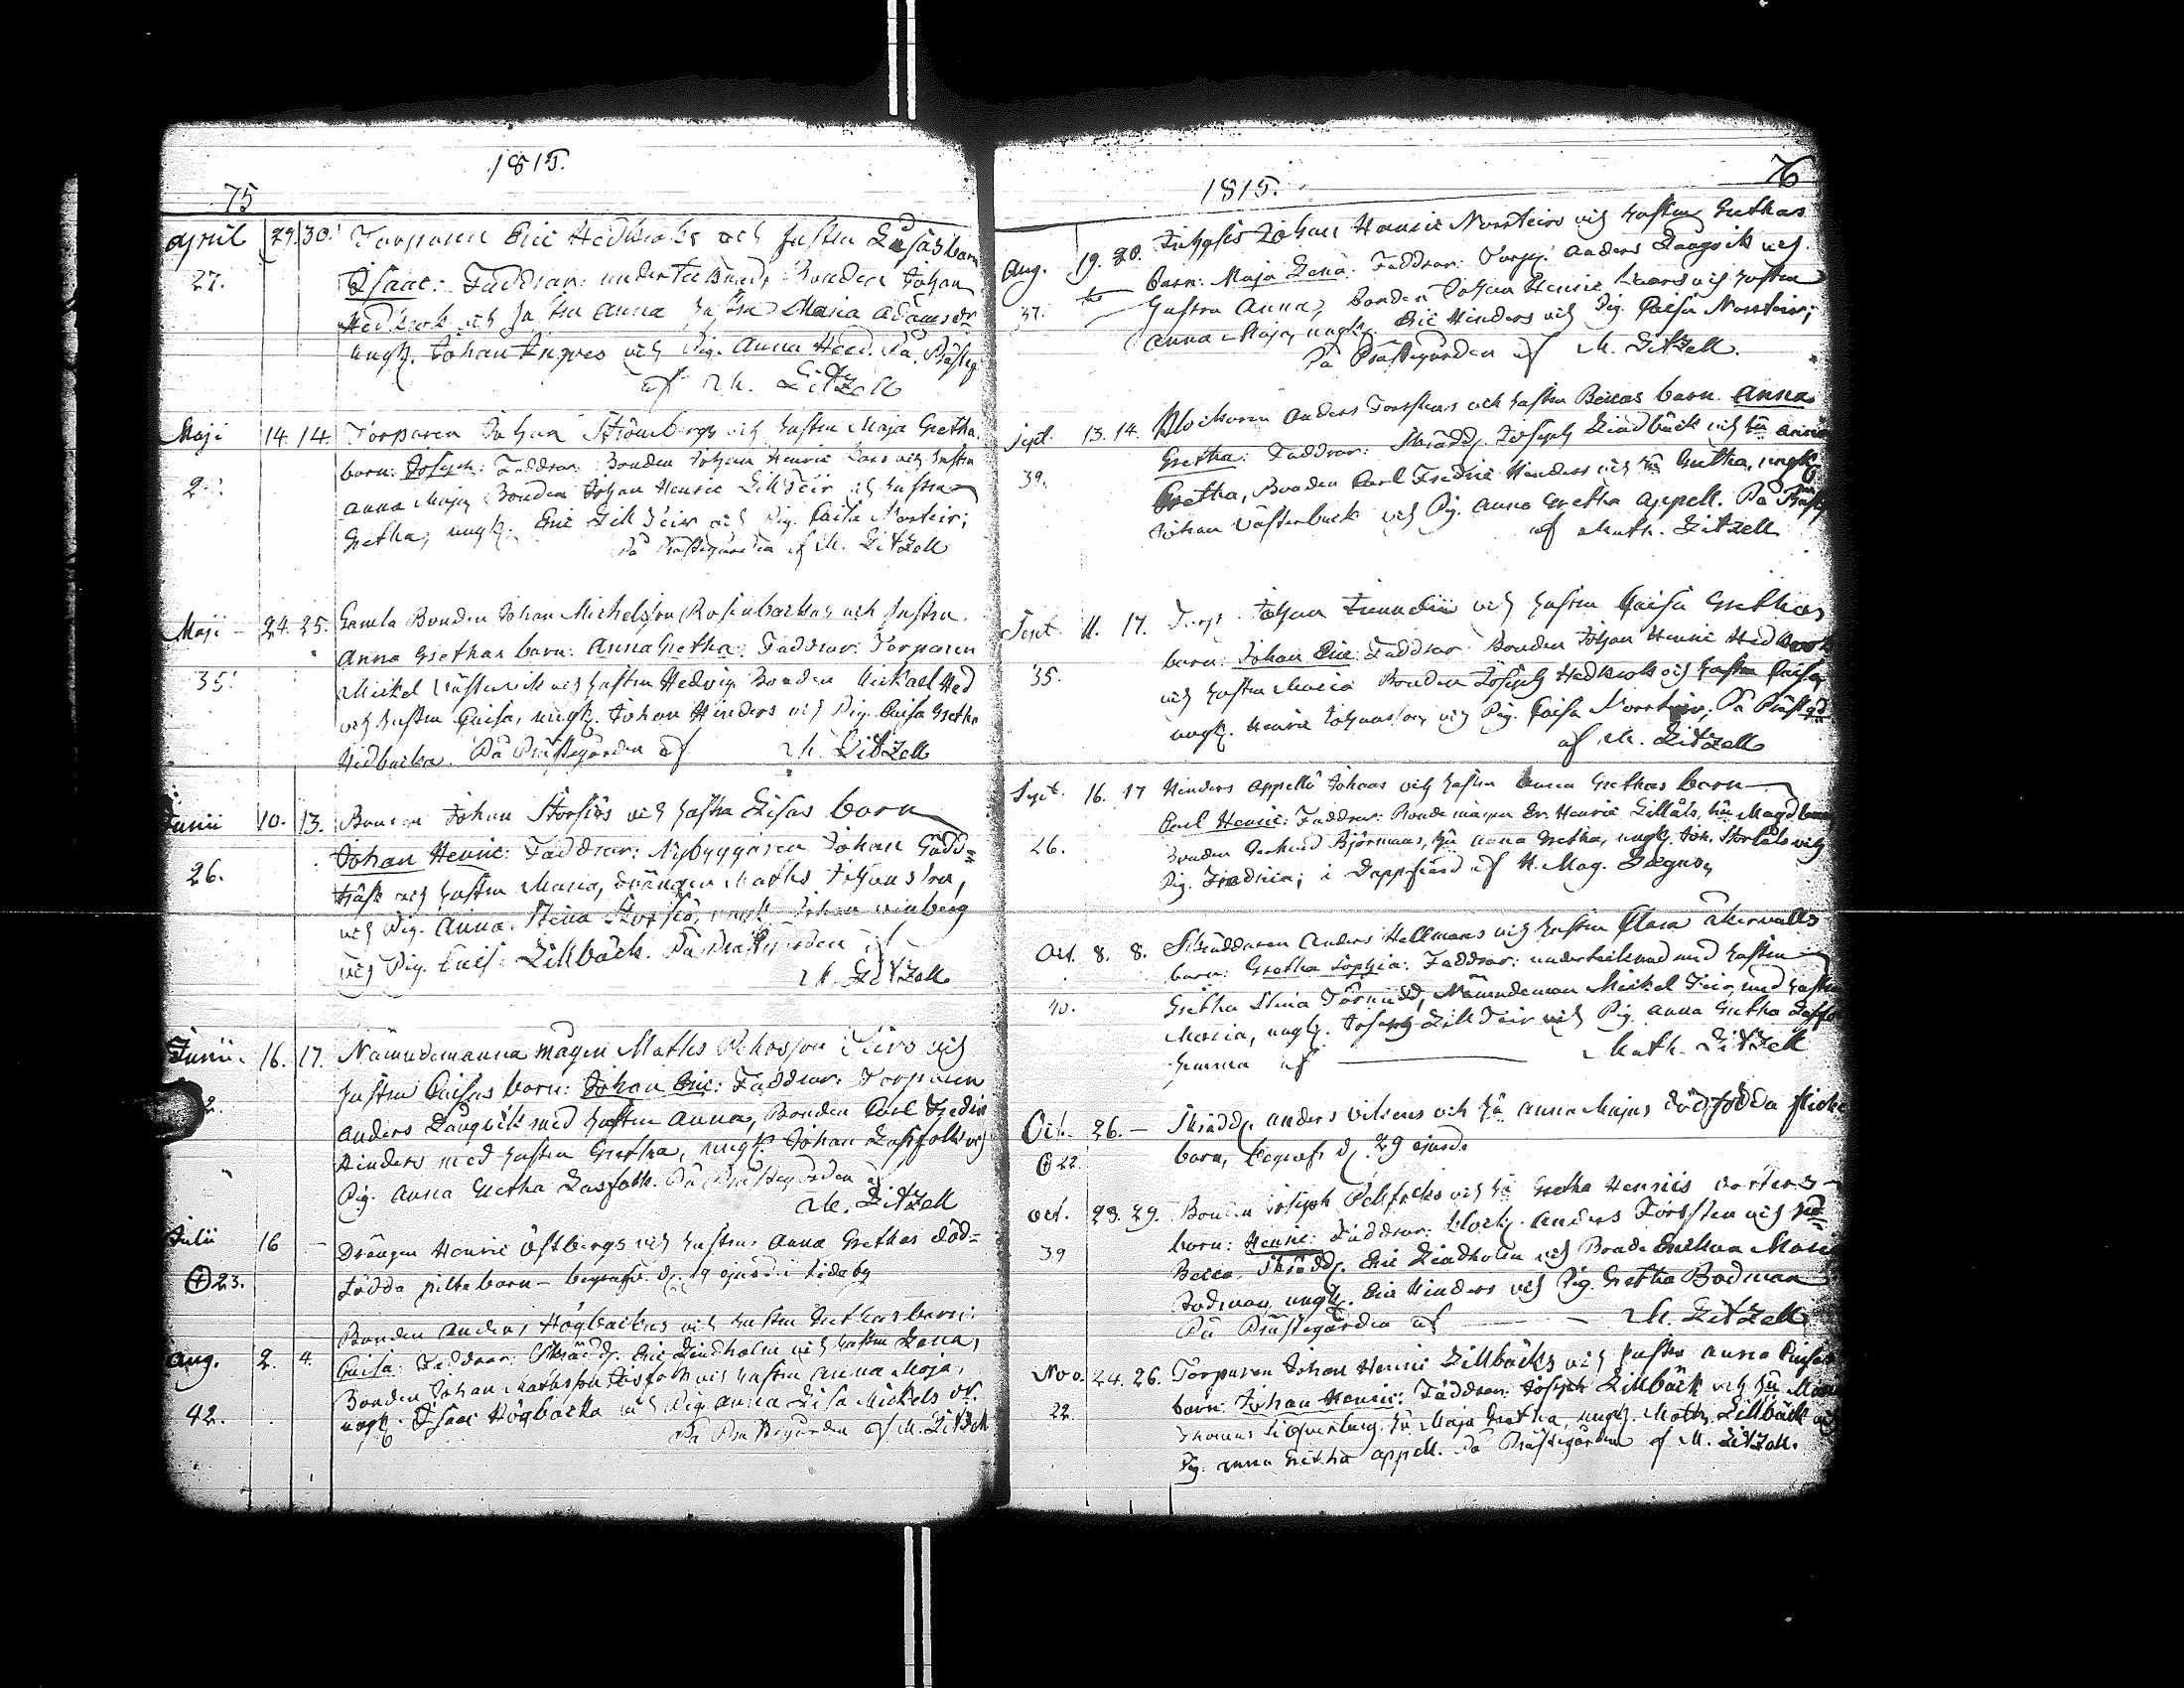 1815.
75
April 29. 30. Torparen Eric Hedkroks och hustru Lisas barn
27. Isaac: Faddrar: undertecknad, Bonden Johan
Hedkrok och hustru Anna, hustru Maria Adamsdr
ungk. Johan Ingves och Pig. Anna Heed. På Prästg.
af M. Litzell
Maji 14. 14. Torparen Johan Strömbergs och hustru Maja Gretha
barn: Joseph: Faddrar: Bonden Johan Henric Kars och hustru
2 Anna Maja, Bonden Johan Henric Lill Teir och hustru
Gretha, ungk. Eric Lill Teir och Pig. Caisa Norrteir;
På Prästegården af M. Litzell
Maji - 24. 25. Gamla Bonden Johan Michelsson Rosenbackas och hustru
Anna Grethas barn: Anna Gretha: Faddrar: Torparen
35. Mickel Västervik och hustru Hedvig, Bonden Mickael Hed
och hustru Caisa, ungk. Johan Hinders och Pig. Caisa Gretha
Hedbacka. På Prästegården af M. Litzell
Junii 10. 13. Bonden Johan Storsjös och hustru Lisas barn
Johan Henric: Faddrar: Nybyggaren Johan Gädd=
26. träsk och hustru Maria, drängen Maths Johansson,
och Pig. Anna Stina Storsjö, ungk. Johan Vinberg
och Pig. Cais. Lillbäck. På Prästgården af
M. Litzell
Junii. 16. 17. Nämndemanna mågen Maths Pehrsson Teirs och
hustru Caisas barn: Johan Eric: Faddrar: Torparen
2. Anders Långvik med hustru Anna, Bonden Carl Fredric
Hinders med hustru Gretha, ungk. Johan Lassfolk och
Pig. Anna Gretha Lassfolk. På Prästegården af
M. Litzell
Julii 16 - Drängen Henric Östbergs och hustru Anna Grethas död=
23. födda piltebarn - begrafv. d. 19 ejusd. i
Bonden Anders Högbackas och hustru Grethas barn:
Aug. 2. 4. Caisa: Faddrar: Skrädd. Eric Lindholm och hustru Lena,
Bonden Johan Mathsson och hustru Anna Maja,
42. ungk. Isaac Högbacka och Pig. Anna Lisa Mickels dr.
På Prästegården af M. Litzell
76
1815.
Aug. 19. 20. Inhyses Johan Henric Norrteirs och hustru Grethas
barn: Maja Lena: Faddrar: Torp. Anders Långvik och
37. hustru Anna, Bonden Johan Henric Kaars och hustru
Anna Maja, ungk. Eric Hinders och Pig. Caisa Norrteir;
På Prästegården af M. Litzell.
Sept. 13. 14. Blockaren Anders Forsstens och hustru Beccas barn. Anna
Gretha: Faddrar: Skrädd. Joseph Lindbäck och hu Anna
39. Gretha, Bonden Carl Fredric Hinders och hu Gretha, ungk
Johan Västerback och Pig. Anna Gretha Appell. På Prästg
af Math. Litzell
Sept. 11. 17. Torp. Johan och hustru Caisa Grethas
barn: Johan Eric: Faddrar: Bonden Johan Henric Hedkrok
35. och hustru Maria Bonden Joseph Hedkrok och hustru Caisa,
ungk. Henric Johansson och Pig. Caisa Norrteir, På Prästgd
af M. Litzell
Sept. 16. 17 Hinders Appellö Johans och hustru Anna Grethas barn
Carl Henric: Faddrar: Bonde mågen Er. Henric Lillåls, hu Magdlena
26. Bonden Björmans, hu Anna Gretha, ungk. Joh. Storåls och
Pig. Fredrica; i Dappfärd af H. Mag.
Oct. 8. 8. Skräddaren Anders Hellmans och hustru Clara Åkervalls
barn: Gretha Sophia: Faddrar: undertecknad med hustru
40. Gretha Stina Törnudd, Nämndeman Mickel Teir med hustru
Maria, ungk. Joseph Lill Teir och Pig. Anna Gretha Lassfo
hemma af Math. Litzell
Oct. 26. - Skrädd. Anders Vikens och hu Anna Majas dödfödda flicke
22. barn, begraf. d. 29 ejusd.
Oct. 23. 29. Bonden Joseph Pellfolks och hu Gretha Henrics dotters
barn: Henric: Faddrar: block. Anders Forssten och hu
39 Becca, Skrädd. Eric Lindholm och Bonde Enkan Maria
Bodman, ungk. Eric Hinders och Pig. Gretha Bodman
På Prästegården af M. Litzell
Nov. 24. 26. Torparen Johan Henric Lillbäcks och hustru Anna Caisas
barn: Johan Henric: Faddrar: Joseph Lillbäck och hu Maria
22. Thomas hu Maja Gretha, ungk. Maths Lillbäck och
Pig. Anna Gretha Appell. På Prästegården af M. Litzell.